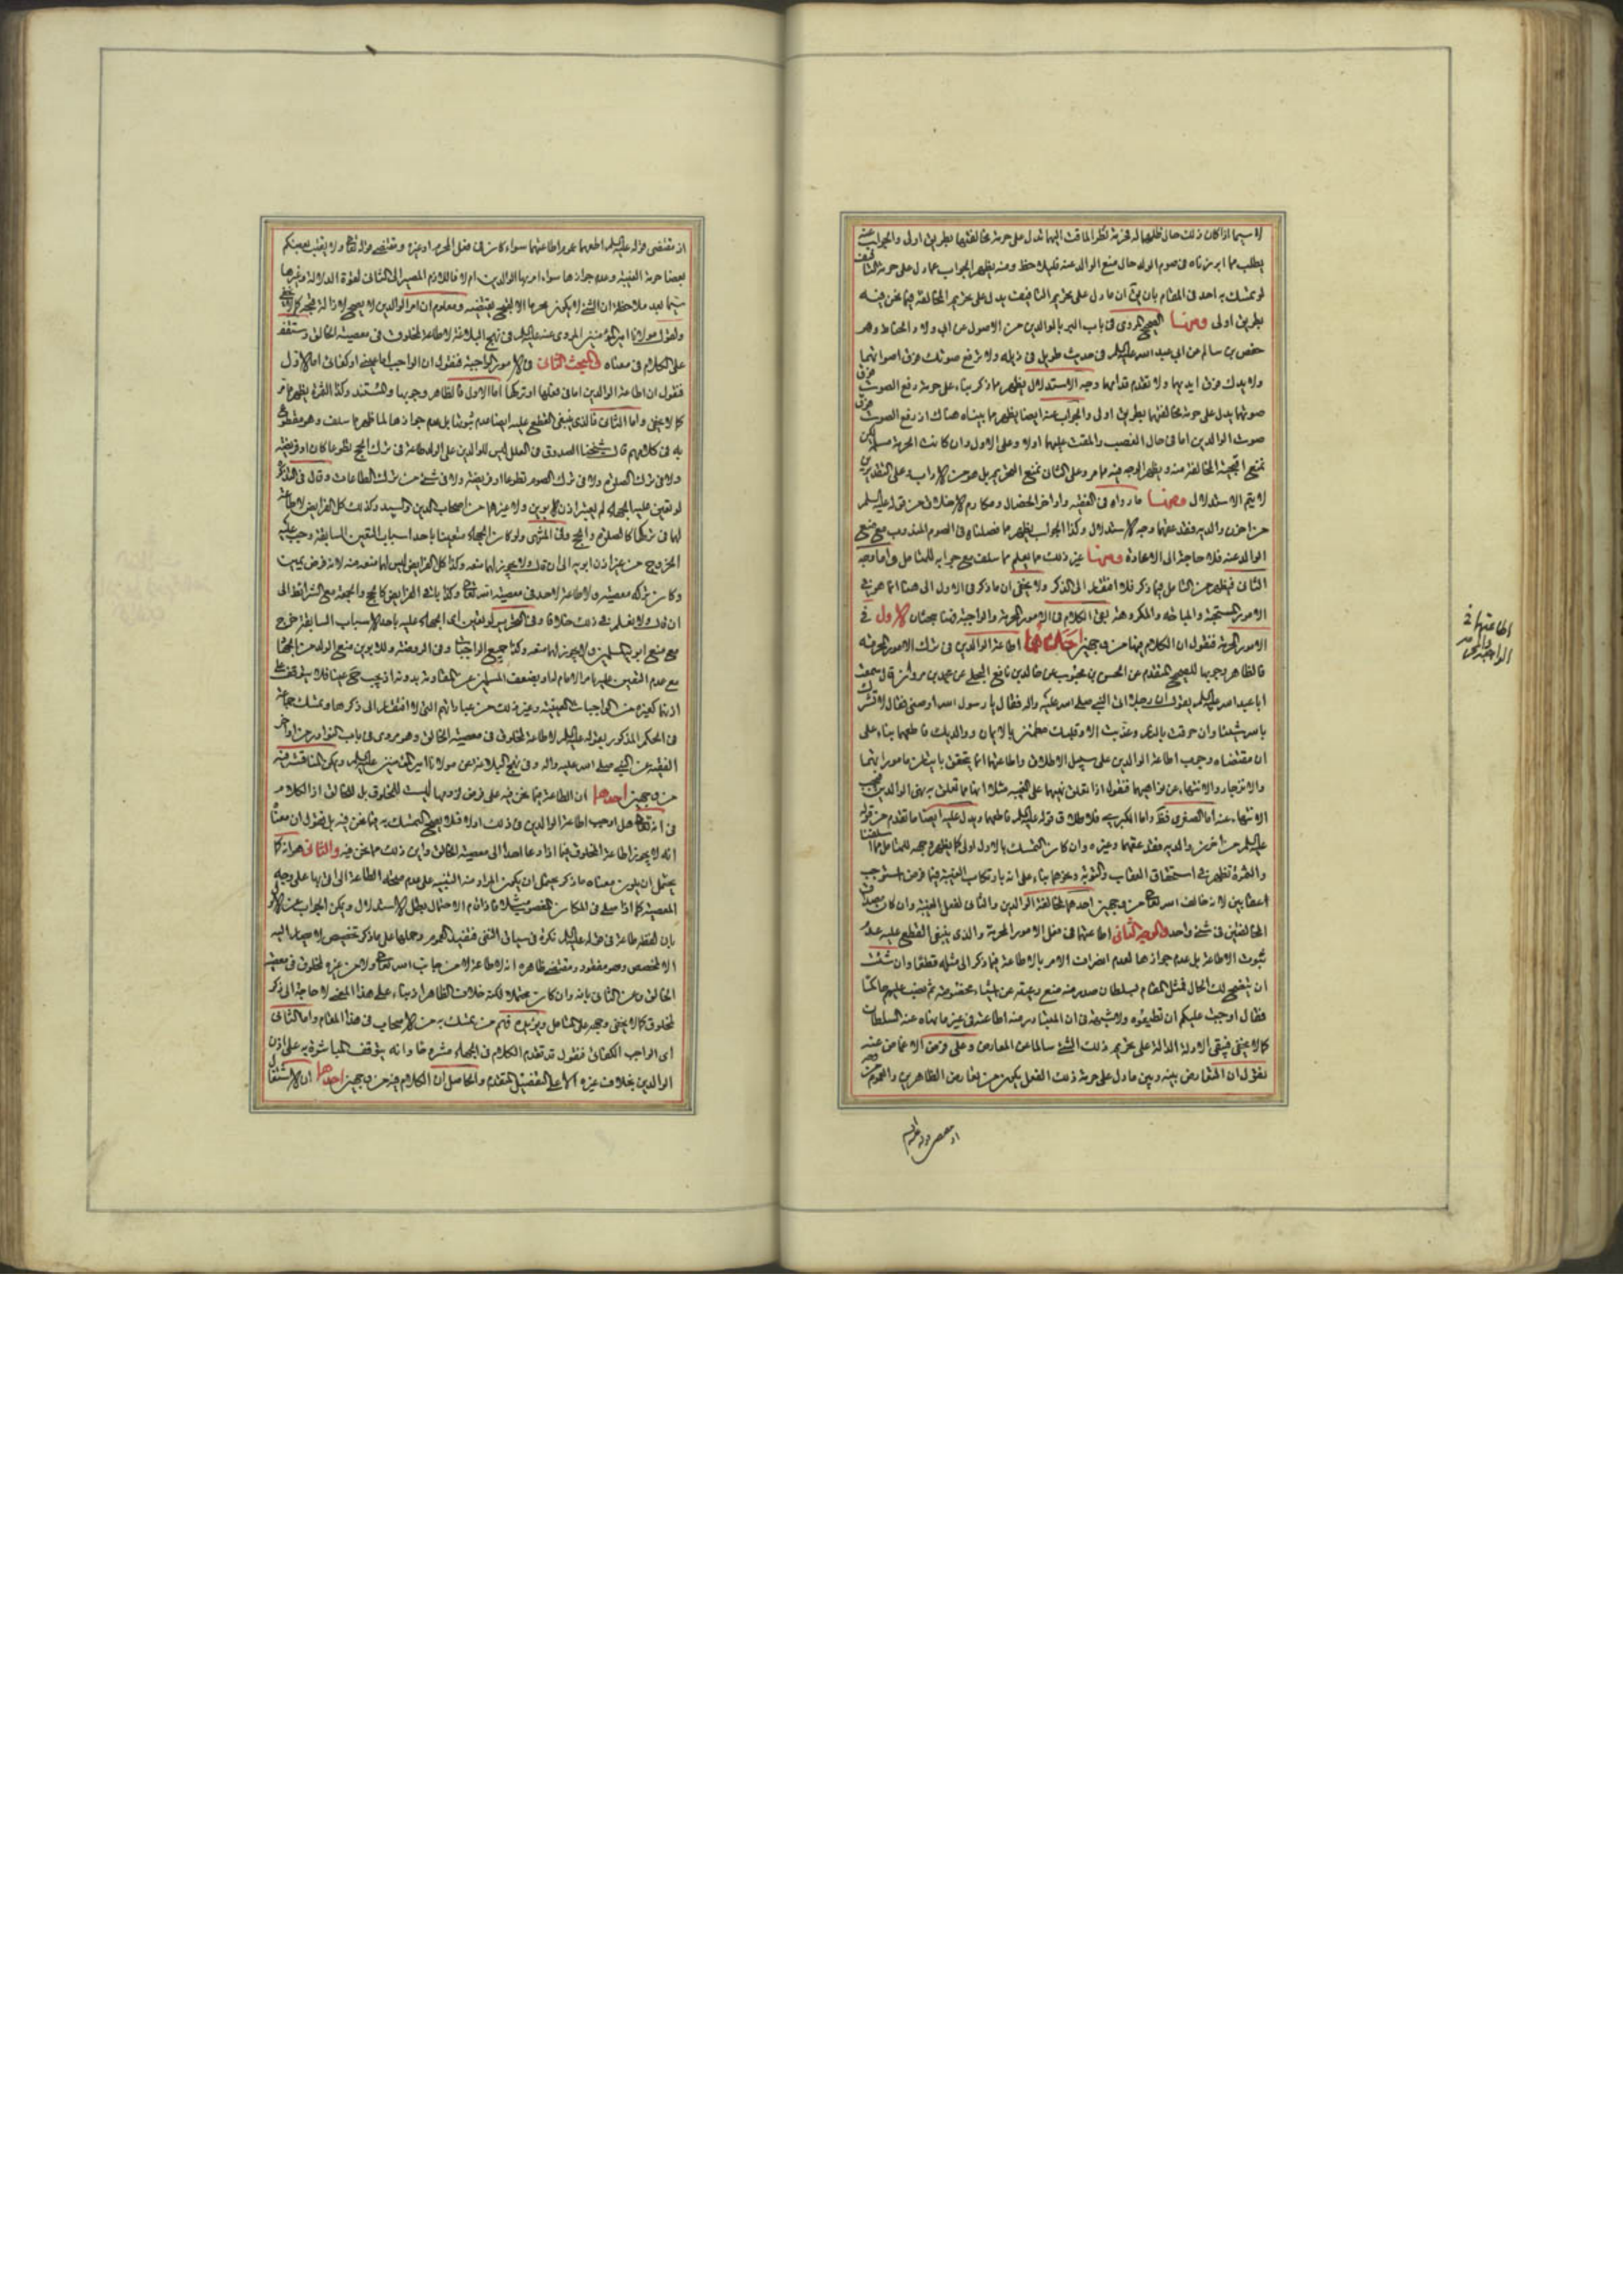 لا سيما اذا كان ذلك حال ظلمهما له فحرمة النظر الماقت اليهما تدل على حرمة مخالفتهما بطريق اولى والجواب عنه
يطلب مما ابرزناه فى صوم الولد حال منع الوالد عنه فليلاحظ ومنه يظهر الجواب عما دل على حرمة التافيف
لو تمسك به احد فى المقام بان يق ان ما دل على تحريم التافيف يدل على تحريم المخالفة فيما نحن فيه
بطريق اولى ومنها الصحيح المروى فى باب البر بالوالدين من الاصول عن ابى ولاد الحناط وهو
حفص بن سالم عن ابى عبد الله عليه السلم فى حديث طويل فى ذيله ولا ترفع صوتك فوق اصواتهما
ولا يدك فوق ايديهما ولا تقدم قدامهما وجه الاستدلال يظهر مما ذكر بناء على حرمة رفع الصوت فوق
صوتهما يدل على حرمة مخالفتهما بطريق اولى والجواب عنه ايضا يظهر مما بيناه هناك اذ رفع الصوت فوق
صوت الوالدين اما فى حال الغضب والمقت عليهما اولا وعلى الاول وان كانت الحرمة مسلمة لكن
نمنع اقبحية المخالفة منه ويظهر الوجه فيه مما مر وعلى الثانى نمنع التحريم بل هو من الاداب وعلى التقديرين
لا يتم الاستدلال ومنها ما رواه فى الفقيه واواخر الخصال ومكارم الاخلاق من قوله عليه السلم
من احزن والديه فقد عقهما وجه الاستدلال وكذا الجواب يظهر مما فصلناه فى الصوم المندوب مع منع
الوالد عنه فلا حاجة الى الاعادة ومنها غير ذلك مما يعلم مما سلف مع جوابه للمتامل واما وجه
الثانى فيظهر من التامل فيما ذكر فلا افتقار الى الذكر ولا يخفى ان ما ذكر فى الاول الى هنا انما هو فى
الامور المستحبة والمباحة والمكروهة بقى الكلام فى الامور المحرمة والواجبة فهنا مبحثان الاول فى
الامور المحرمة فنقول ان الكلام فيها من وجهين احدهما اطاعة الوالدين فى ترك الامور المحرمة
فالظاهر وجوبها للصحيح المتقدم عن الحسن بن محبوب عن خالد بن نافع البجلى عن محمد بن مروان قال سمعت
ابا عبد الله عليه السلم يقول ان رجلا اتى النبى صلى الله عليه واله فقال يا رسول الله اوصنى فقال لا تشرك
بالله شيئا وان حرقت بالنار وعذبت الا وقلبك مطمئن بالايمان ووالديك فاطعهما بناء على
ان مقتضاه وجوب اطاعة الوالدين على سبيل الاطلاق واطاعتهما انما يتحقق بامتثال ما مورا بهما
والانزجار والانتهاء عن نواهيهما فنقول اذا تعلق نهيهما على الغيبة مثلا انها مما تعلق به نهى الوالدين فيجب
الانتهاء عنه اما الصغرى فظ واما الكبرى فلاطلاق قوله عليه السلم فاطعهما ويدل عليه ايضا ما تقدم من قوله
عليه السلم من احزن والديه فقد عقهما وغيره وان كان التمسك بالاول اولى كما يظهر وجهه للمتامل مما اسلفنا
والثمرة تظهر فى استحقاق العقاب والتوبة وغيرهما بناء على انه بارتكاب الغيبة فيما فرض استوجب
العقابين لانه خالف الله تعالى من وجهين احدهما لمخالفة الوالدين والثانى لفعل الغيبة وان كان مصداق
المخالفتين فى شئ واحد والوجه الثانى اطاعتهما فى فعل الامور المحرمة والذى ينبغى القطع عليه عدم
ثبوت الاطاعة بل عدم جوازها لعدم انصراف الامر بالاطاعة فيما ذكر الى مثله قطعا وان شئت
ان يتضح لك الحال فمثل المقام بسلطان صدر منه منع رعيته عن اشياء مخصوصة ثم نصب عليهم حاكما
فقال اوجبت عليكم ان تطيعوه ولا شبهة فى ان المتبادر منه اطاعته فى غير ما نهاه عنه السلطان
كما لا يخفى فيبقى الادلة الدالة على تحريم ذلك الشئ سالما عن المعارض وعلى فرض الاغماض عنه
نقول ان التعارض بينه وبين ما دل على حرمة ذلك الفعل يكون من تعارض الظاهرين والعموم من وجه
اطاعتهما فى
الواجبين
اذ مقتضى قوله عليه
اذ مقتضى قوله عليه السلم اطعهما عموم اطاعتهما سواء كان فى فعل المحرم او غيره ومقتضى قوله تعالى ولا يغتب بعضكم
بعضا حرمة الغيبة وعدم جوازها سواء امر بها الوالدين ام لا فاللازم المصير الى الثانى لقوة الدلالة وغيرها
سيما بعد ملاحظة ان الشئ لا يكون محرما الا لقبح يقتضيه ومعلوم ان امر الوالدين لا يصلح لازالة قبحه كما لا يخفى
ولقول مولانا امير المؤمنين المروى عنه عليه السلم فى نهج البلاغة لا طاعة لمخلوق فى معصية الخالق وستقف
على الكلام فى معناه المبحث الثانى فى الامور الواجبة فنقول ان الواجب اما عينى او كفائى اما الاول
فنقول ان اطاعة الوالدين اما فى فعلها او تركها اما الاول فالظاهر وجوبها والمستند وكذا الثمرة يظهر مما مر
كما لا يخفى واما الثانى فالذى ينبغى القطع عليه ايضا عدم ثبوتها بل عدم جوازها لما ظهر مما سلف وهو مقطوع
به فى كلامهم قال شيخنا الصدوق فى العلل ليس للوالدين على الولد طاعة فى ترك الحج تطوعا كان او فريضة
ولا فى ترك الصلوة ولا فى ترك الصوم تطوعا او فريضة ولا فى شئ من ترك الطاعات وقال فى التذكرة
لو تعين عليه الجهاد لم يعتبر اذن الابوين ولا غيرهما من اصحاب الدين والسيد وكذلك كل الفرائض لا طاعة
لهما فى تركها كالصلوة والحج وفى المنتهى ولو كان الجهاد متعينا باحد اسباب التعين السابقة وجب عليه
الخروج من غير اذن ابويه الى ان قال ولا يجوز لهما منعه وكذا كل الفرائض ليس لهما منعه منه لانه فرض يعيب
وكان تركه معصية ولا طاعة لاحد فى معصية الله تعالى وكذا باقى الفرائض كالحج والجمعة مع الشرائط الى
ان قال ولا نعلم فى ذلك خلافا وفى التحرير لو تعين اى الجهاد عليه باحد الاسباب السابقة خرج
مع منع ابويه المسلمين ولا يجوز لهما منعه وكذا جميع الواجبات وفى الروضة وللابوين منع الولد من الجهاد
مع عدم التعين عليه بامر الامام له او بضعف المسلمين عن المقاومة بدونه اذ يجب حينئذ عينا فلا يتوقف على
اذنهما كغيره من الواجبات العينية وغير ذلك من عباراتهم التى لا افتقار الى ذكرها وتمسك جماعة
فى الحكم المذكور بقوله عليه السلم لا طاعة لمخلوق فى معصية الخالق وهو مروى فى باب النوادر من اواخر
الفقيه عن النبى صلى الله عليه واله وفى نهج البلاغة عن مولانا امير المؤمنين عليه السلم ويمكن المناقشة فيه
من وجهين احدهما ان الطاعة فيما نحن فيه على فرض لزومها ليست للمخلوق بل للخالق اذ الكلام
فى انه تعالى هل اوجب اطاعة الوالدين فى ذلك اولا فلا يصح التمسك به فيما نحن فيه بل نقول ان معناه
انه لا يجوز اطاعة المخلوق فيما اذا دعا احدا الى معصية الخالق واين ذلك مما نحن فيه والثانى هو انه كما
يحتمل ان يكون معناه ما ذكر يحتمل ان يكون المراد منه التنبيه على عدم صحة الطاعة التى اتى بها على وجه
المعصية كما اذا صلى فى المكان المغصوب مثلا فاذا قام الاحتمال بطل الاستدلال ويمكن الجواب عن الاول
بان لفظة طاعة فى قوله عليه السلم نكرة فى سياق النفى فتفيد العموم وحملها على ما ذكر تخصيص لا يصار اليه
الا لمخصص وهو مفقود ومقتضى ظاهره انه لا طاعة لا من جانب الله تعالى ولا من غيره لمخلوق فى معصية
الخالق وعن الثانى بانه وان كان محتملا لكنه خلاف الظاهر اذ بناء على هذا المعنى لا حاجة الى ذكر
لمخلوق كما لا يخفى وجهه على المتامل ويؤيده فهم من تمسك به من الاصحاب فى هذا المقام واما الثانى
اى الواجب الكفائى فنقول قد تقدم الكلام فى الجهاد مشروحا وانه يتوقف المباشرة به على اذن
الوالدين بخلاف غيره الا على التفصيل المتقدم والحاصل ان الكلام فيه من وجهين احدهما ان الاشتغال